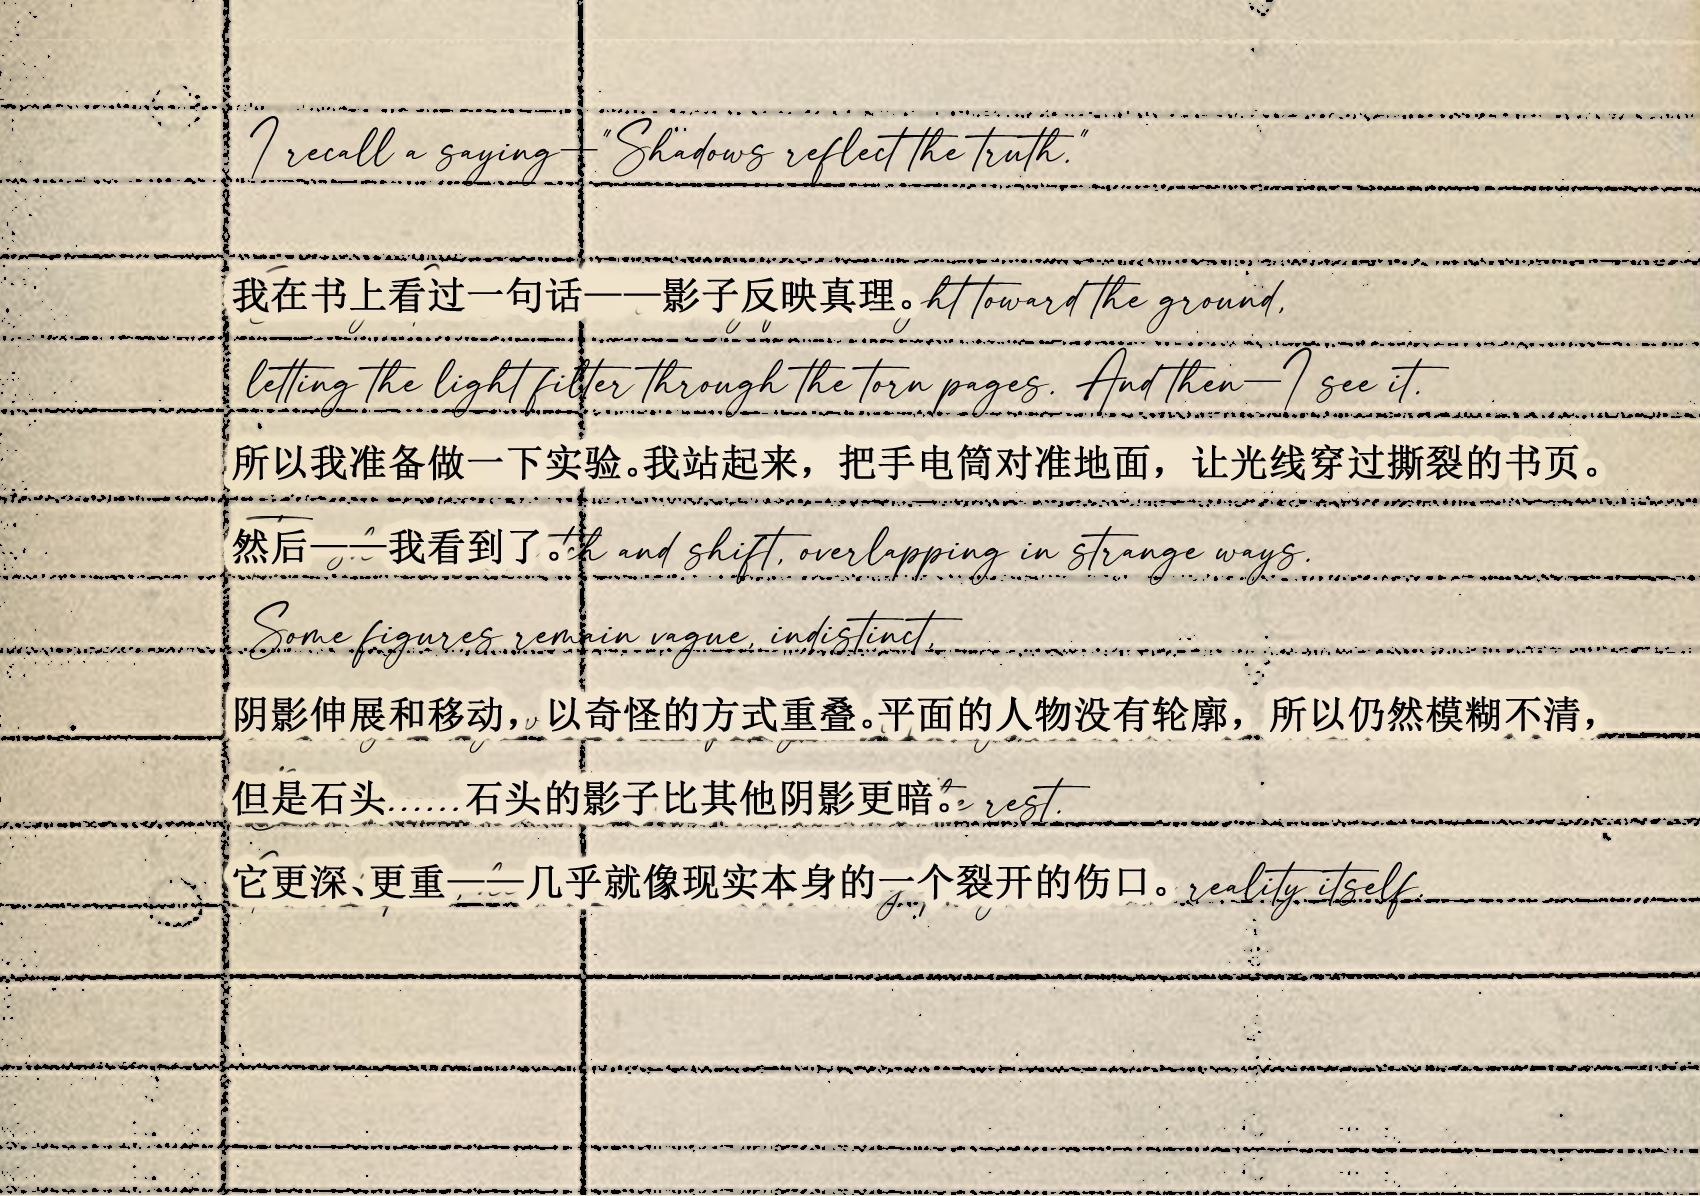 I recall a saying—"Shadows reflect the truth."
我在书上看过一句话——影子反映真理。 toward the ground,
letting the light filter through the torn pages. And then—I see it.
所以我准备做一下实验。我站起来，把手电筒对准地面，让光线穿过撕裂的书页。
然后——我看到了。 and shift, overlapping in strange ways.
Some figures remain vague, indistinct,
阴影伸展和移动，以奇怪的方式重叠。平面的人物没有轮廓，所以仍然模糊不清，
但是石头……石头的影子比其他阴影更暗。 rest.
它更深、更重——几乎就像现实本身的一个裂开的伤口。 reality itself.